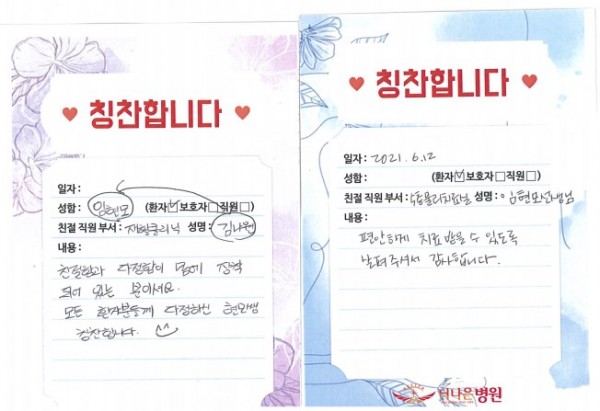 칭찬합니다
일자:
성함: 임현모 (환자☑보호자□직원□)
친절 직원 부서: 재활클리닉 성명: 김나원
내용:
친절함과 다정함이 몸에 장착
되어 있는 분이세요.
모든 환자분들께 다정하신 현모쌤
칭찬합니다. ^^
칭찬합니다
일자: 2021. 6.12
성함: (환자☑보호자□직원□)
친절 직원 부서: 수동물리치료실 성명: 임현모선생님
내용:
편안하게 치료받을 수 있도록
살펴주셔서 감사합니다.
더나은병원